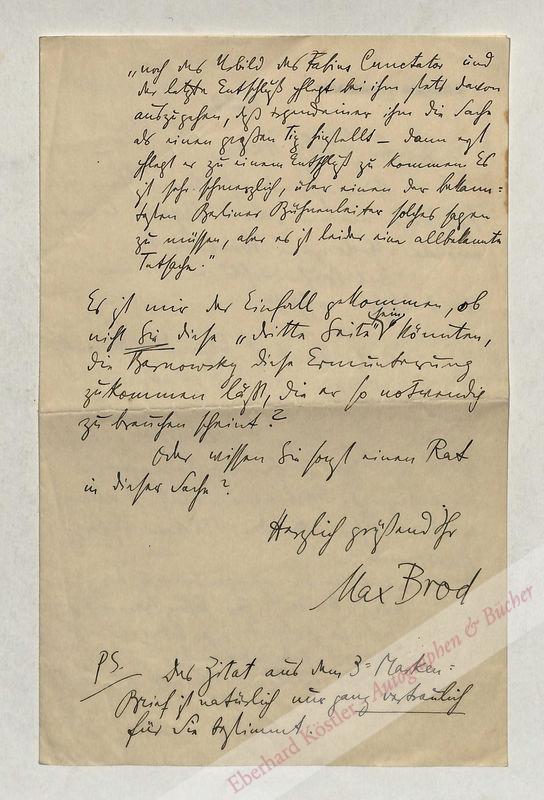 „noch das Urbild des Fabius Cunctator und
der letzte Entschluß pflegt bei ihm stets davon
auszugehen, daß irgendeiner ihm die Sache
als einen großen Tip hinstellt – dann erst
pflegt er zu einem Entschluß zu kommen Es
ist sehr schmerzlich, über einen der bekann=
testen Berliner Bühnenleiter solches sagen
zu müssen, aber es ist leider eine allbekannte
Tatsache."
Es ist mir der Einfall gekommen, ob
nicht Sie diese „dritte Seite" sein könnten,
die Barnowsky diese Ermunterung
zukommen läßt, die er so notwendig
zu brauchen scheint?
Oder wissen Sie sonst einen Rat
in dieser Sache?
Herzlich grüßend Ihr
Max Brod
PS. Das Zitat aus dem 3= Marken=
Brief ist natürlich nur ganz vertraulich
für Sie bestimmt.
Eberhard Köstler Autographen & Bücher